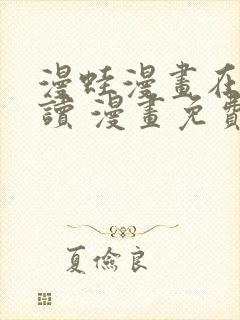 漫蛙漫畫在
讀 漫畫免費
夏儉良